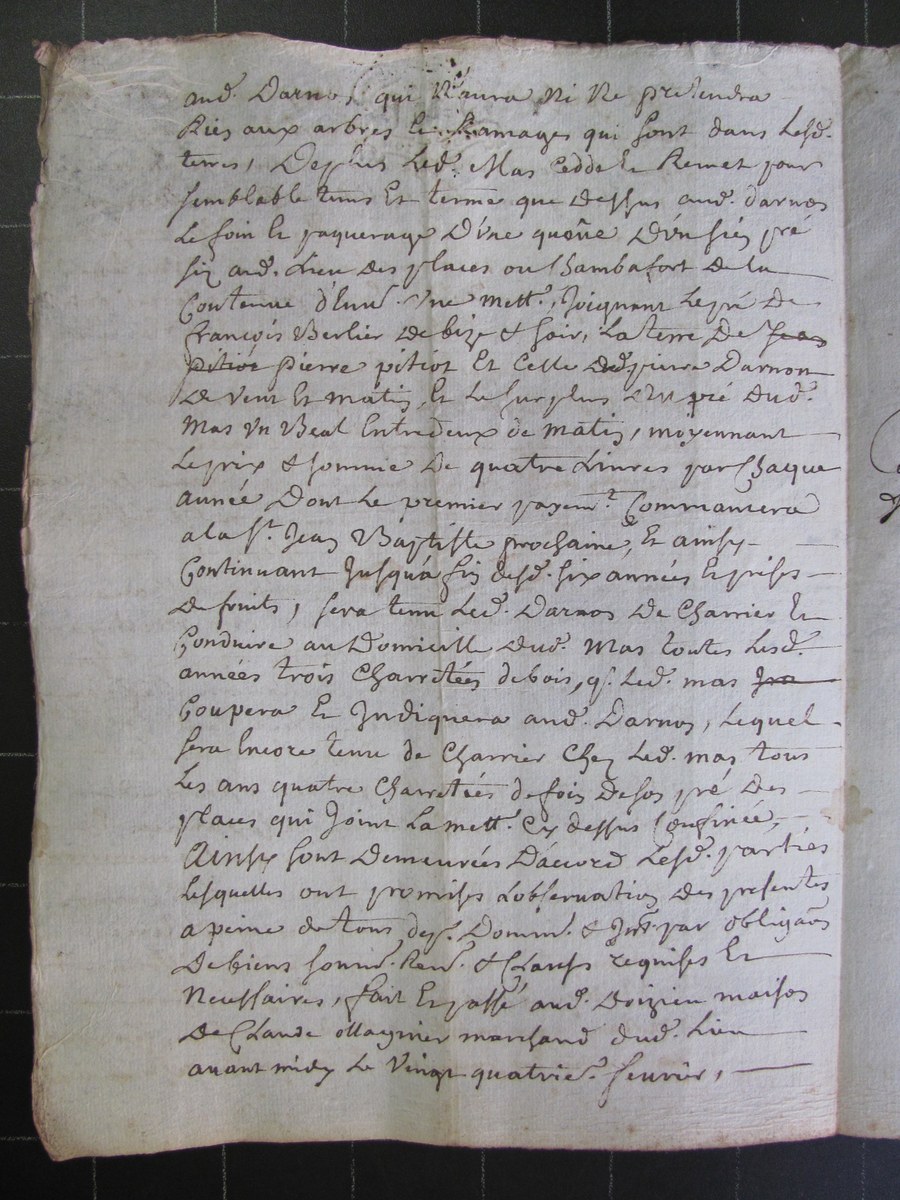 aud. Darnon, qui N'aura Ni Ne pretendra
Rien aux arbres Et Ramages qui sont dans Lesd.
terres, De plus Led. Mas Cedde Et Remet pour
semblable tems Et terme que dessus aud. darnon
Le foin Et paquerage D'une D'un sien pré
sis aud. Lieu des places ou Chambafort de la
Contenue d'Envn. Une mett., Joignant Le pré De
françois Berlier de bize & soir, La terre De Jean
pitiot Pierre pitiot Et Celle dud pierre Darnon
de Vent Et matin, Et Le surplus du pré dud.
Mas Un Beal Entredeux de matin, moyennant
Le prix & somme De quatre Livres par Chaque
année Dont Le premier payemt. Commancera
a la st. Jean Baptiste prochaine, Et ainsy
Continuant Jusqu'a fin desd. six années Et prises
de fruits, sera tenu Led. Darnon De Charrier Et
Conduire au Domicille dud. Mas toutes Lesd.
années trois Charretées de bois, q. Led. mas
Coupera Et Indiquera aud. Darnon, Lequel
sera Encore tenu de Charrier Chez Led. mas tous
Les ans quatre Charretées de foin de son pré des
places qui Joint La mett. Cy dessus Confinée,
Ainsy sont Demeurées D'accord Lesd. parties
Lesquelles ont promises L'observation des presentes
a peine de tous desp. Domm. & Intt. par obligaon
De biens soum. Ren. & Clauses requises Et
Necessaires, fait Et passé aud. doizieu maison
de Claude ollagnier marchand dud. Lieu
avant midy Le Vingt quatrie. fevrier,